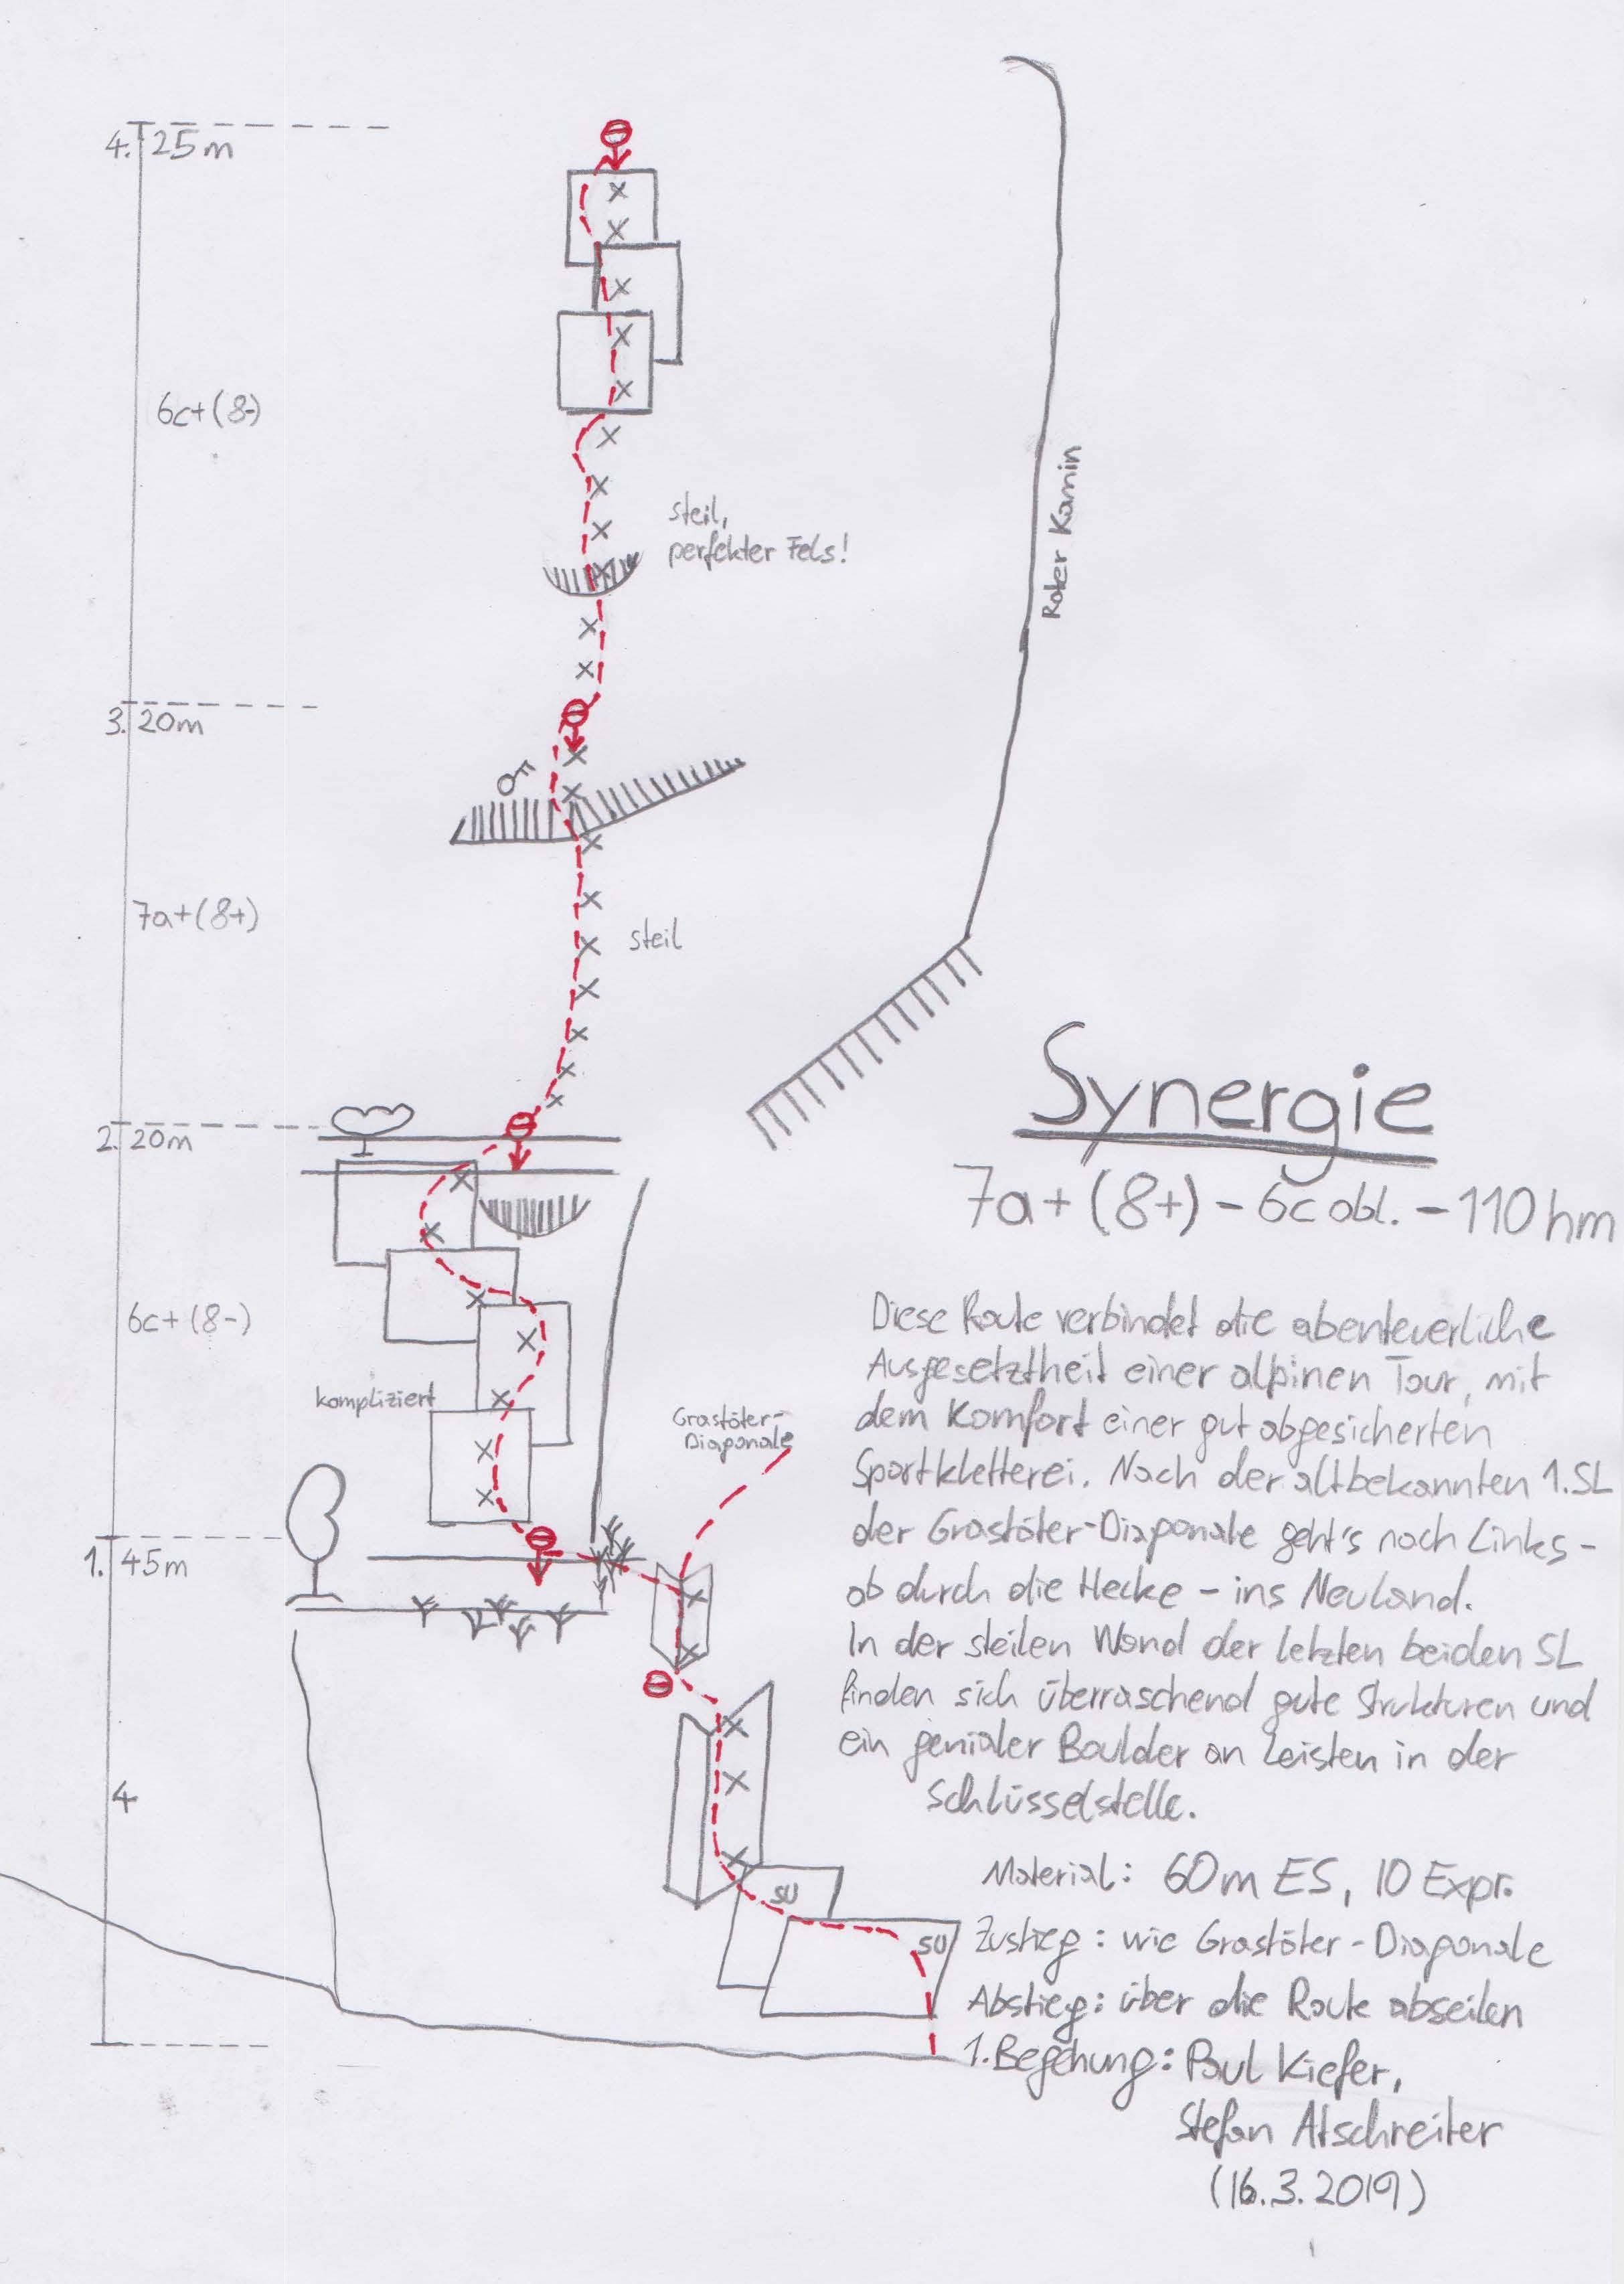 4. 25m
6c+(8-)
steil,
perfekter Fels!
Roter Kamin
3. 20m
7a+(8+)
steil
2. 20m
6c+(8-)
kompliziert
Grastöter-
Diagonale
1. 45m
4
SU
SU
Synergie
7a+(8+) - 6c obl. - 110hm
Diese Route verbindet die abenteuerliche
Ausgesetztheit einer alpinen Tour, mit
dem Komfort einer gut abgesicherten
Sportkletterei. Nach der altbekannten 1.SL
der Grastöter-Diagonale geht's nach Links -
ab durch die Hecke - ins Neuland.
In der steilen Wand der letzten beiden SL
finden sich überraschend gute Strukturen und
ein genialer Boulder an Leisten in der
Schlüsselstelle.
Material: 60m ES, 10 Expr.
Zustieg: wie Grastöter-Diagonale
Abstieg: über die Route abseilen
1. Begehung: Paul Kiefer,
Stefan Atschreiter
(16.3.2019)